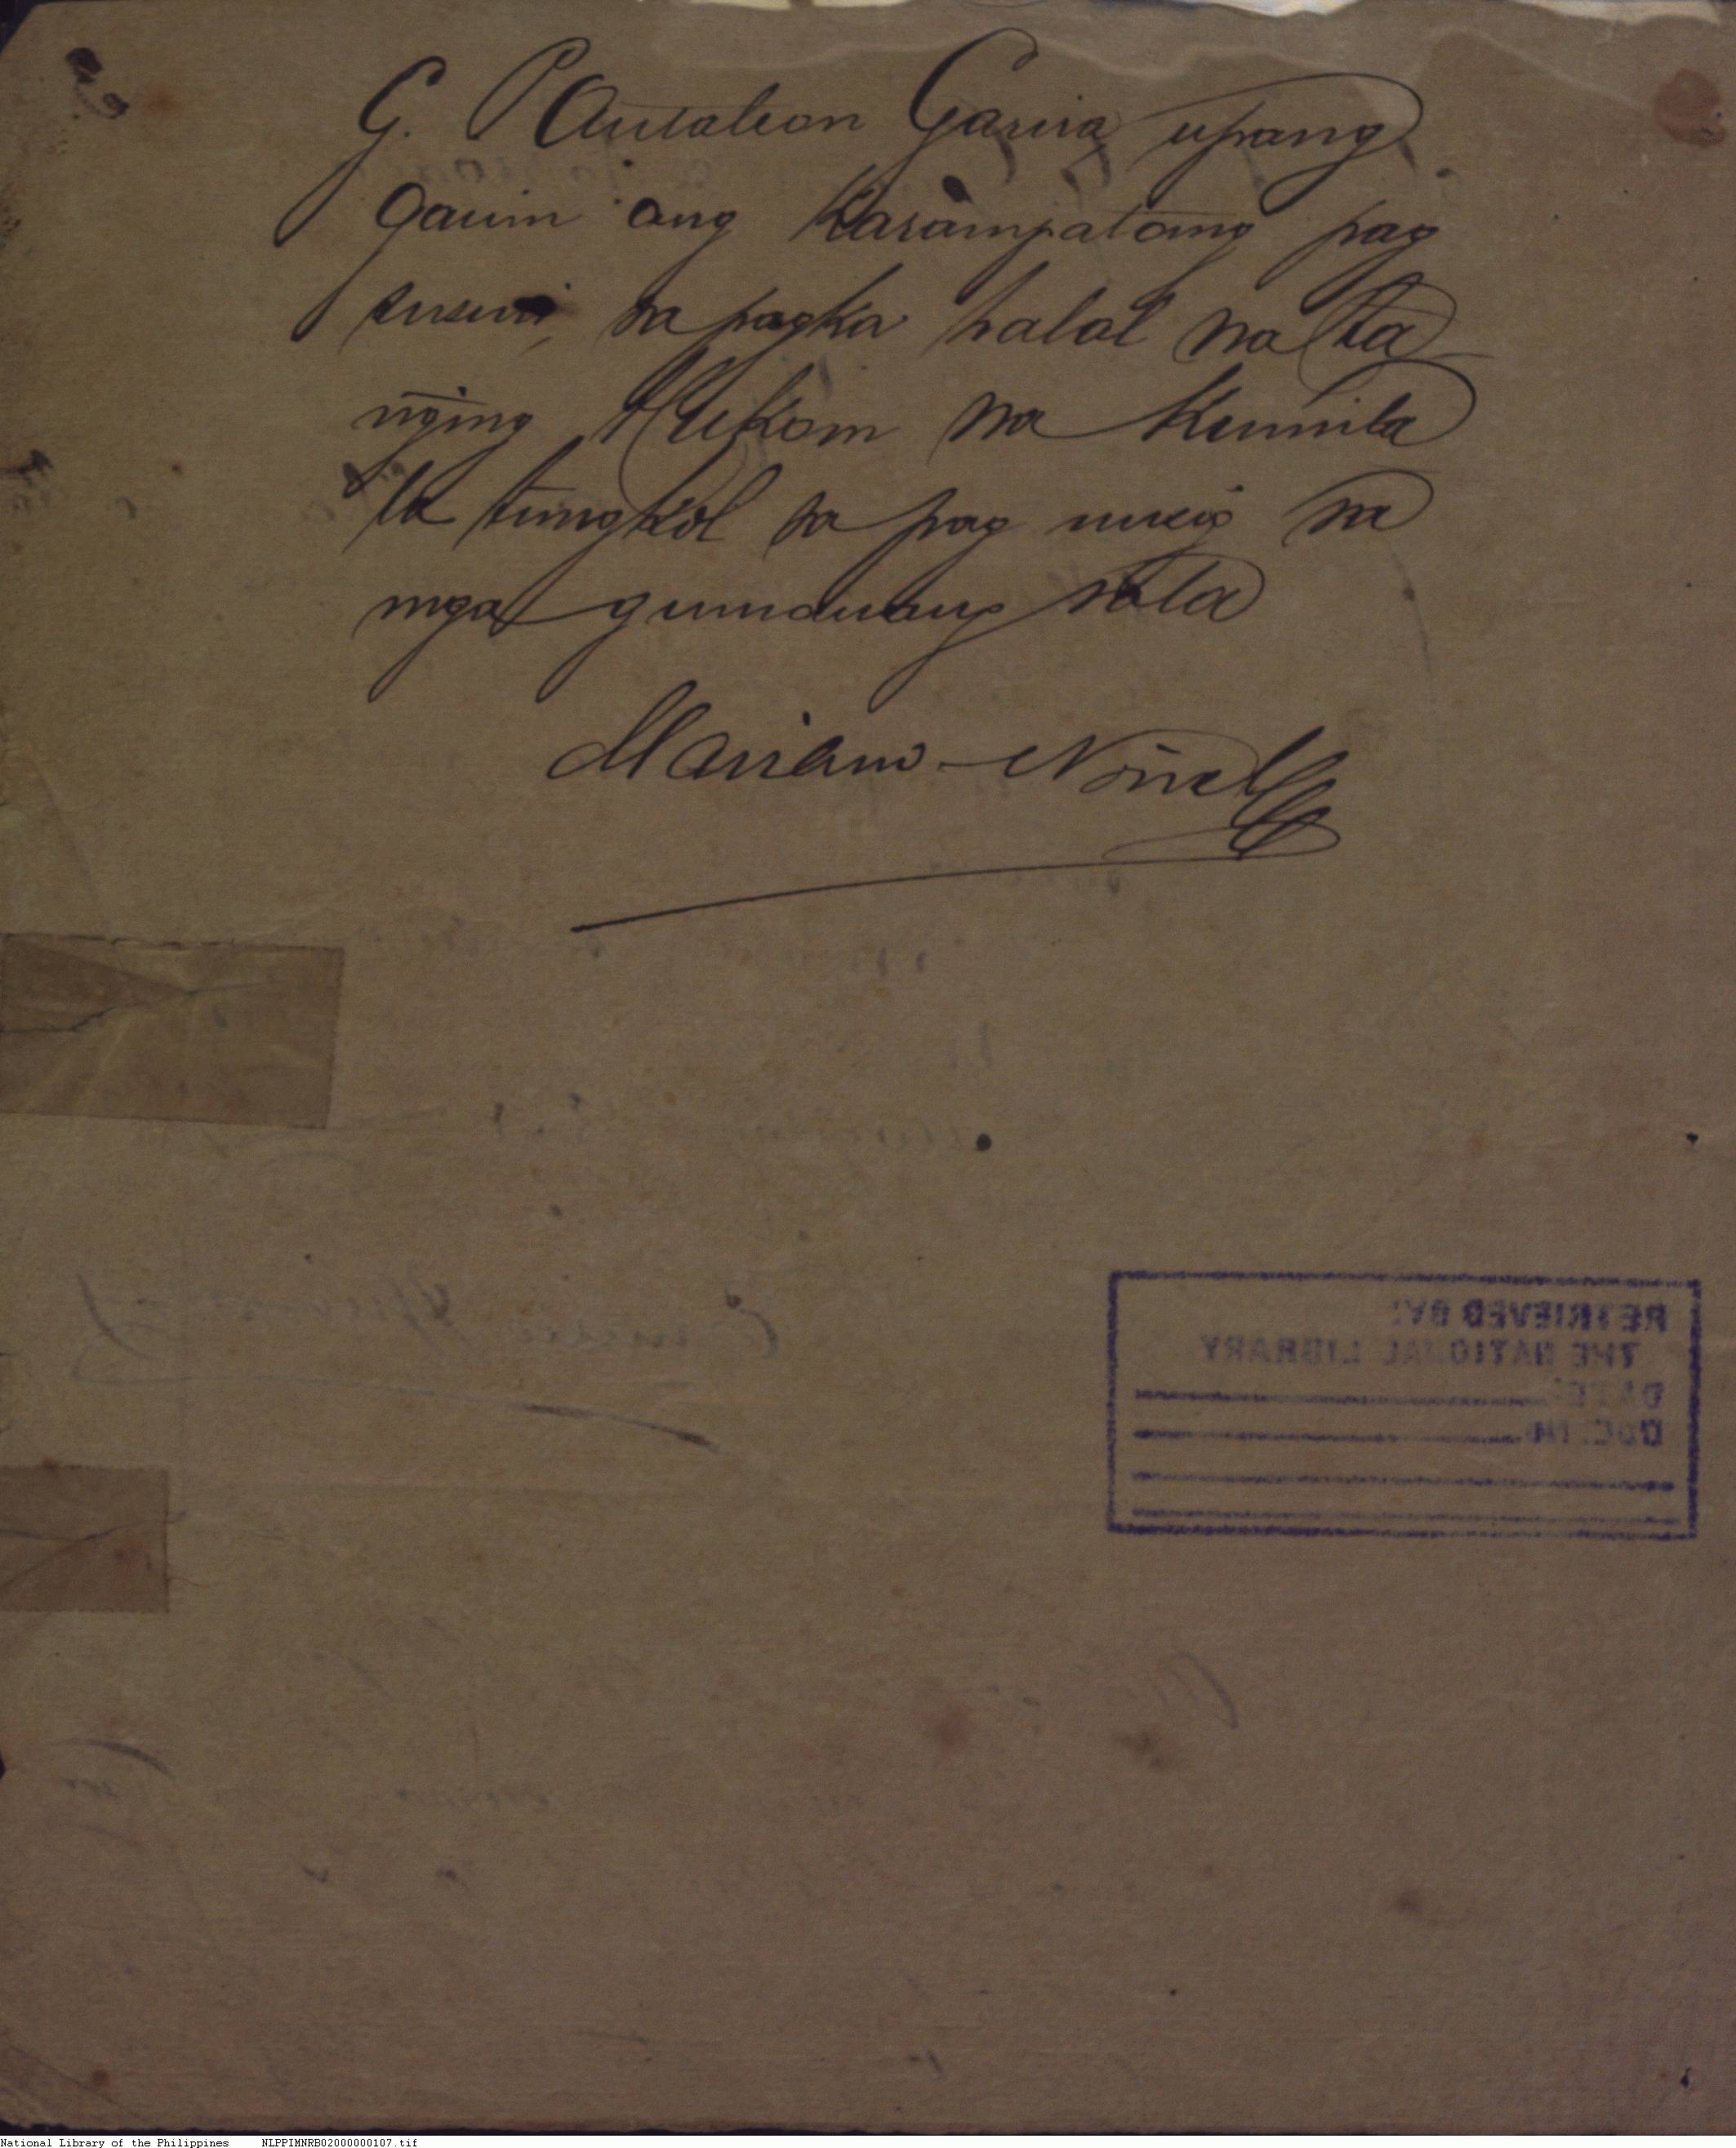 G. Pantaleon Garcia upang
gauin ang karampatang pag
susuri, sa pagka halal na ta
nging Hukom na kumila
la tungkol sa pag uusig sa
mga gumawang nota
Mariano Noriel
RETRIEVED BY:
THE NATIONAL LIBRARY
DATE
DOC. No.
National Library of the Philippines NLPPIMNRB02000000107.tif